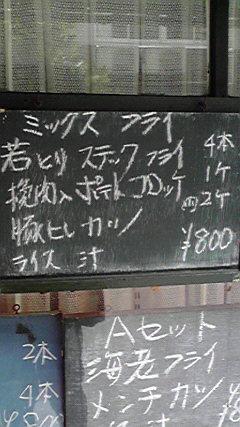 ミックス フライ
若とり ステック フライ 4本
挽肉入 ポテトコロッケ 1ケ
豚ヒレ カツ 2ケ
ライス 汁 ¥800
2本
4本
Aセット
海老フライ
メンチカツ